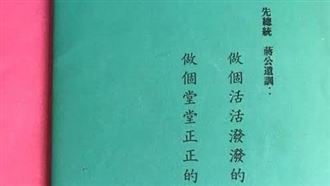 先總統 蔣公遺訓：
做個活活潑潑的
做個堂堂正正的